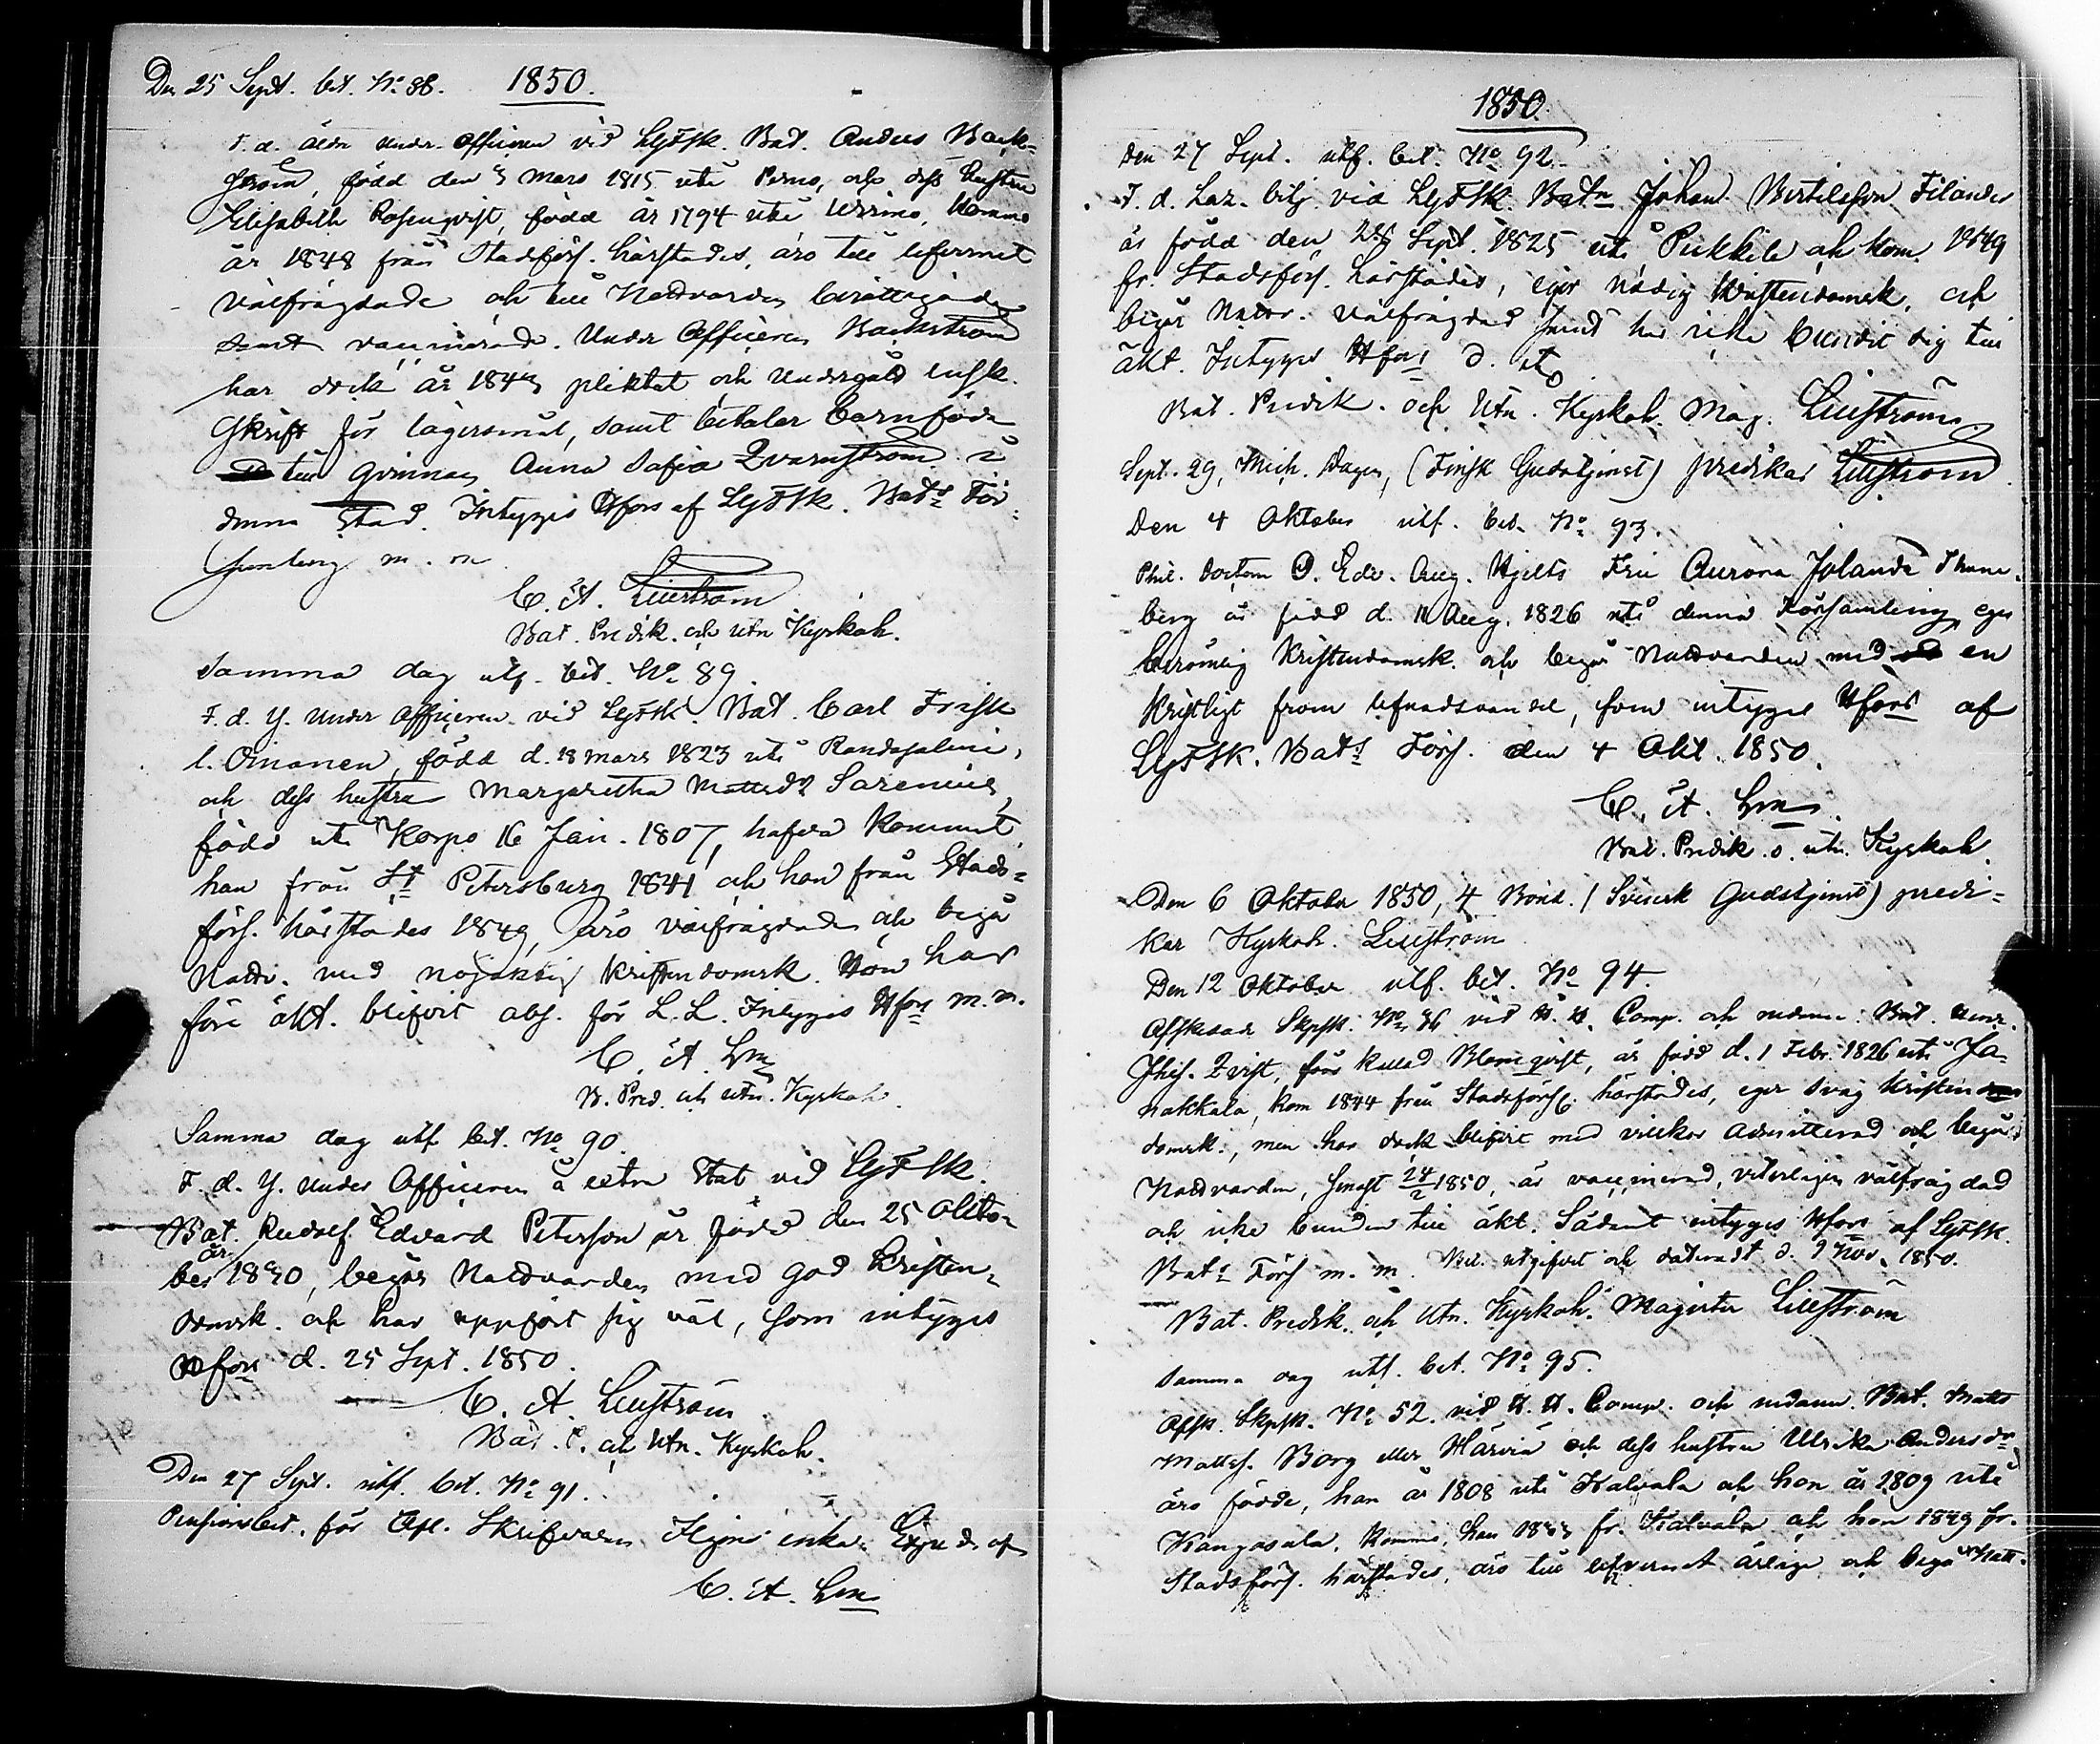 Den 25 Sept. bet. No 88. 1850.
F. d. äldre under officeren vid LGFSk. Bat. Anders Back-
ström, född den 3 Mars 1815 uti Perno, och dess hustru
Elisabeth Rosenqvist, född år 1794 uti,
år 1848 från Stadsförs. härstädes, äro till lefvernet
välfrägdade och till Nattvarden berättigade
samt vaccinerade. Under Officeren Backström
har dock år 1843 pliktat och undergått ensk.
Skrift för lägersmål, samt betalar barnföda
till qvinnan Anna Sofia Zvarnström i
denna Stad. Intygas Hfors af LGFSk. Bats För-
samling m. m
C. A. Liliström
Bat. Predik. och utn Kyrkoh.
Samma dag utf. bet. No 89.
F. d. Y. Under Officeren vid LGFSk. Bat. Carl Frisk
l. Oinonen, född d. 18 Mars 1823 uti Randasalmi,
och dess hustru Margaretha Mattsdr Sarenius,
född uti Korpo 16 Jan. 1807, hafva kommit
han från St Petersburg 1841 och hon från Stads-
förs. härstädes 1849, äro välfrägdade och begå
Nattv. med nöjaktig kristendomsk. Hon har
före äkt. blifvit abs. för L.L. Intygas Hfors m.m.
C. A. Lm
B. Pred. och utn. Kyrkoh.
Samma dag utf bet. No 90.
F. d. Y. Under Officeren å extra Stat vid LGFSk.
Bat. Rudolf Edvard Peterson är född den 25 Okto-
ber år 1830, begår Nattvarden med god kristen-
domsk. och har uppfört sig väl, som intygas
Hfors d. 25 Sept. 1850.
C. A. Liliström
Bat. P. och Utn. Kyrkoh.
Den 27 Sept. utf. bet. No 91.
Pensionsbet. för Afl. Skrifvaren enka. af
C. A. Lm
1850.
Den 27 Sept. utf. bet. No 92.
F. d. Laz. betj. vid LGFSk. Batn Johan Bertilsson Filander
är född den Sept. 1825 uti Pukkila och kom 1849
fr. Stadsförs. härstädes, eger nödig kristendomsk. och
begår Nattv. Välfrägdad samt har icke bundit sig till
äkt. Intygas Hfors d. ut
Bat. Predik. och Utn. Kyrkoh. Mag. Liliström
Sept. 29, Mich. Dagen, (Finsk Gudstjenst) predikar Liliström
Den 4 Oktober utf. bet. No 93.
Phil. Doctorn O. Edv. Aug. Hjelts Fru Aurora Jolanda Thune-
berg är född d. 11 Aug. 1826 uti denna Församling, eger
berömlig Kristendomsk. och begår Nattvarden med en
kristligt from lefnadsvandel, som intygas Hfors af
LGFSk. Bats Förs. den 4 Okt. 1850.
C. A. Lm
Bat. Predik. o. utn. Kyrkoh.
Den 6 Oktober 1850, 4 Bönd. (Svensk Gudstjenst) predi-
kar Kyrkoh. Liliström
Den 12 Oktober utf. bet. No 94.
Afskedade Skpsk. No 96 vid Comp. och nämnde Bat.
Zvist, förr kallad Blomqvist, är född d. 1 Febr. 1826 uti Ja-
nakkala, kom 1844 från Stadsförs. härstädes, eger svag kristen
domsk., men har dock blifvit med villkor admitterad och begått
Nattvarden, senast 24/2 1850, är vaccinerad, veterligen välfrägdad
och icke bunden till äkt. Sådant intygas Hfors af LGFSk.
Bats Förs m. m. utgifvit och dateradt d. 9 Nov. 1850.
Bat. Predik. och Utn. Kyrkoh. Magister Liliström
Samma dag utf. bet. No 95.
Afsk. Skpsk. No 52. vid Comp. och nämnde Bat. Matts
Mattss. Borg eller Härviä och dess hustru Ulrika Andersdr
äro födde, han år 1808 uti Kalvola och hon år 1809 uti
Kangasala, komne, han 1843 fr. Kalvola och hon 1849 fr.
Stadsförs. härstädes, äro till lefvernet ärliga och begå Natt-